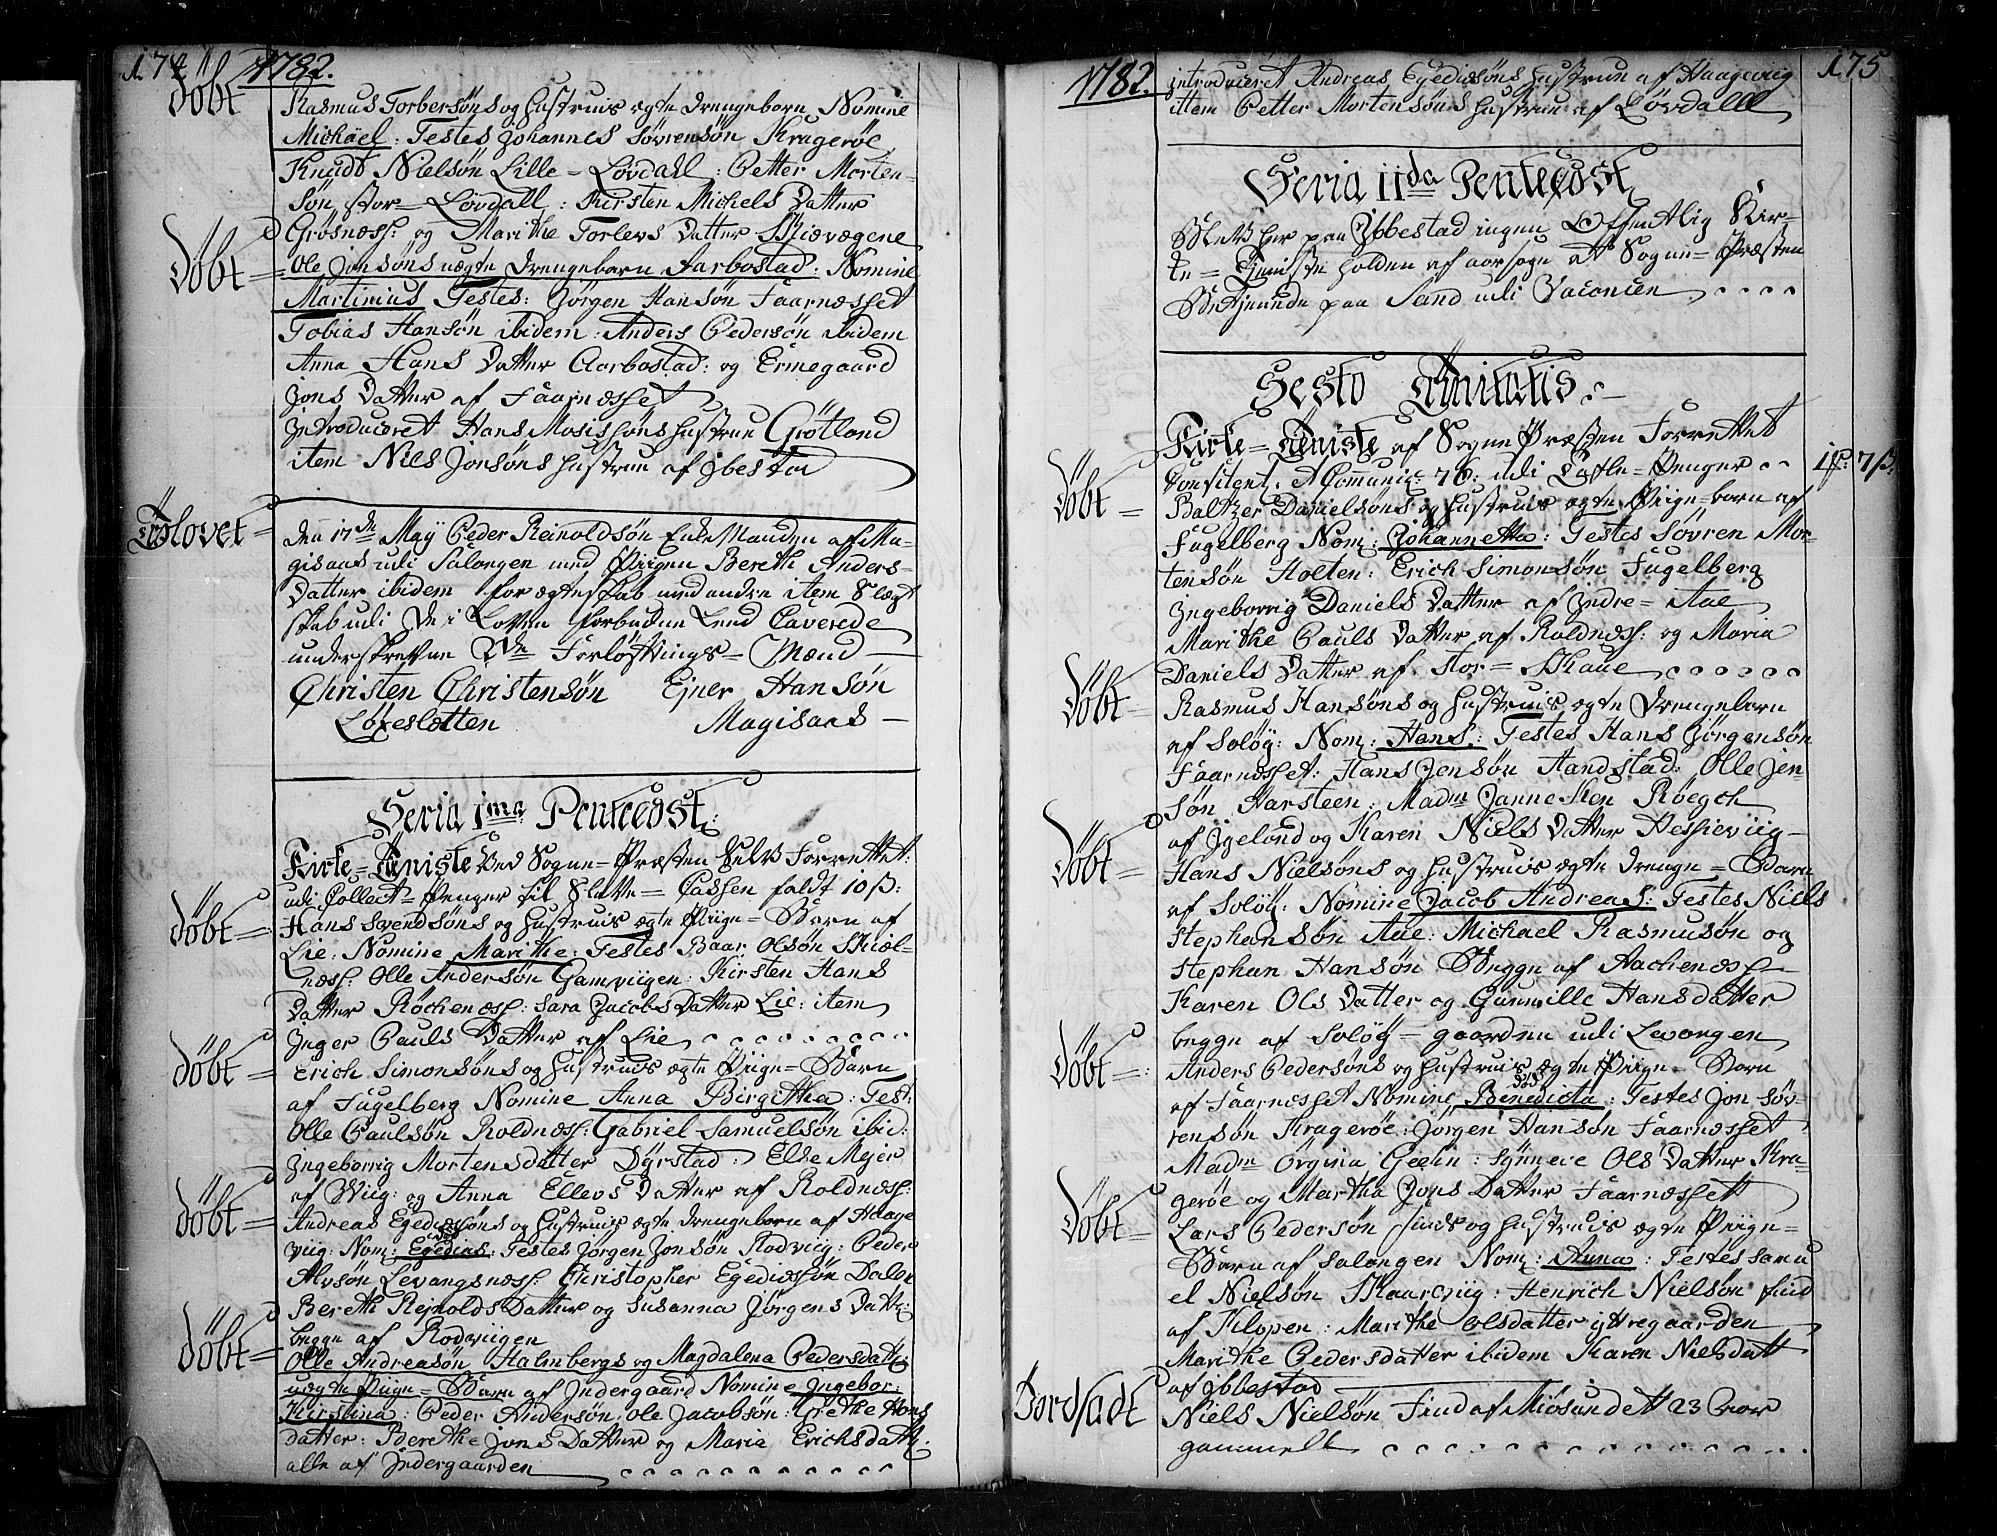 174 1782.
Döbt Rasmus Torbersöns og Hustruis ægte Drengebarn Nomine
Michäel: Testes Johannes Sövrensön Krageröe
Knudt Nielsön Lille = Lövdahl: Petter Morten-
sön stor = Lövdall: Kirsten Michels Datter
Grösness: og Marithe Torlevs Datter Skiævægene
Döbt = Ole Jonsöns uægte Drengebarn Aarbostad: Nomine
Martinius Testes: Jörgen Hansön Faarnesset
Tobias Hansön ibidem: Anders Pedersön ibidem
Anna Hans Datter Aarbostad: og Ermegaard
Jons Datter af Faarnesset
Introduceret Hans Mosishöns Hustrue Grötland
item Niels Jonsöns Hustrue af Ibestad
Trolovet = Den 17de May Peder Reinoldsön Enke Manden af Ma-
gisand udi Salangen med Piigen Bereth Anders-
Datter ibidem for ægteskab med andre item Slægt
skab udi De i Loven forbudne Leed Caverede
underskrevne Tvende Forlöftnings = Mænd —
Christen Christensön Ejner Hansön
Löxesletten Magisand —
Feria 1ma Pentecost:
Kirke = Tieniste ved Sogne = Præsten Selv Forrettet:
udi Collect = Penger til Slatte = Cassen faldt 10 ß:
Döbt = Hans Svendsöns og Hustruis ægte Piige = Barn af
Lie: Nomine Marithe: Testes Baar Olsön Skiæl-
ness: Olle Andersön Gamviigen: Kirsten Hans
Datter Röcheness: Sara Jacobs Datter Lie: item
Inger Pauls Datter af Lie
Döbt = Erich Simonsöns og Hustruis ægte Piige = Barn
af Fugelberg Nomine Anna Birgitha: Test:
Olle Paulsön Roldness: Gabriel Samuelsön ibid:
Ingeborrig Mortensdatter Dÿrstad: Else Mejer
af Wiig: og Anna Ellevs Datter af Roldness:
Döbt = Andreas Egediussöns og Hustruis ægte Drengebarn af Haage
viig: Nom: Egedius: Testes Jörgen Jonsön Rodviig: Peder
Alvsön Levangsness: Christopher Egedissön Dalen
Berethe Rejnolds Datter og Susanna Jörgens Datt:
begge af Rodviigen
Döbt = Olle Andreasön Halmbergs og Magdalena Pedersdatt:
uægte Piige = Barn af Indergaard Nomine Ingebor:
Kirstina: Peder Andersön: Ole Jacobsön: Grethe Hans
datter: Berethe Jons Datter og Maria Erichsdatt:
alle af Indergaarden
1782. 175
introduceret Andreas Egediusöns Hustrue af Haageviig
item Petter Mortensöns Hustrue af Lövdalll
Feria IIda Pentecost
Blev her paa Ybbestad ingen Offentlig Kir-
ke = Tieniste holden af aarsage at Sogne = Præsten
Betjenede paa Sand udi Vacancen
Festo Trinitatis:
Kirke = Tieniste af Sogne Præsten Forrettet
Confitent. & Comunic: 76. udi Tavle = Penger 1 p: 7 ß:
Döbt = Baltzer Danielsöns og Hustruis ægte Piige = barn af
Fugelberg Nom: Johannetta: Testes Sövren Mor-
tensön Holten: Erich Simonsön Fugelberg
Ingeborrig Daniels Datter af Indre = Aae
Marithe Pauls Datter af Roldness: og Maria
Daniels Datter af stor = Skaue
Döbt = Rasmus Hansöns og Hustruis ægte Drengebarn
af Solöÿ: Nom: Hans: Testes Hans Jörgensön
Faarnesset: Hans Jensön Aandstad: Olle Jen-
sön Harsteen: Madm Janneken Röegch
af Igeland og Karen Niels Datter Hessieviig
Döbt = Hans Nielsöns og Hustruis ægte Drenge = Barn
af Solöÿ: Nomine Jacob Andreas: Testes Niels
Stephansön Aae: Michael Rasmusön og
Stephan Hansön Begge af Aacheness
Karen Ols Datter og Gunnille Hansdatter
begge af Solöÿ = gaarden udi Levangen
Döbt = Anders Pedersöns og Hustruis ægte Piige = Barn
af Faarnesset Nomine Benedicta: Testes Jon Söv-
rensön Krageröe: Jörgen Hansön Faarnesset
Madm Örgina Geelin: Sÿnneve Ols Datter Kra-
geröe og Martha Jons Datter Faarnesset
Döbt = Lars Pedersön finds og Hustruis ægte Piige =
Barn af Salangen Nom: Anna: Testes Samu
el Nielsön Skaarviig: Henrich Nielsön find
af Klopen: Marithe Olsdatter ÿttregaarden
Marithe Pedersdatter ibidem Karen Nielsdatt
af Ibbestad
Jordfædt Niels Nielsön Find af Miösundett 23 Aar
gammell